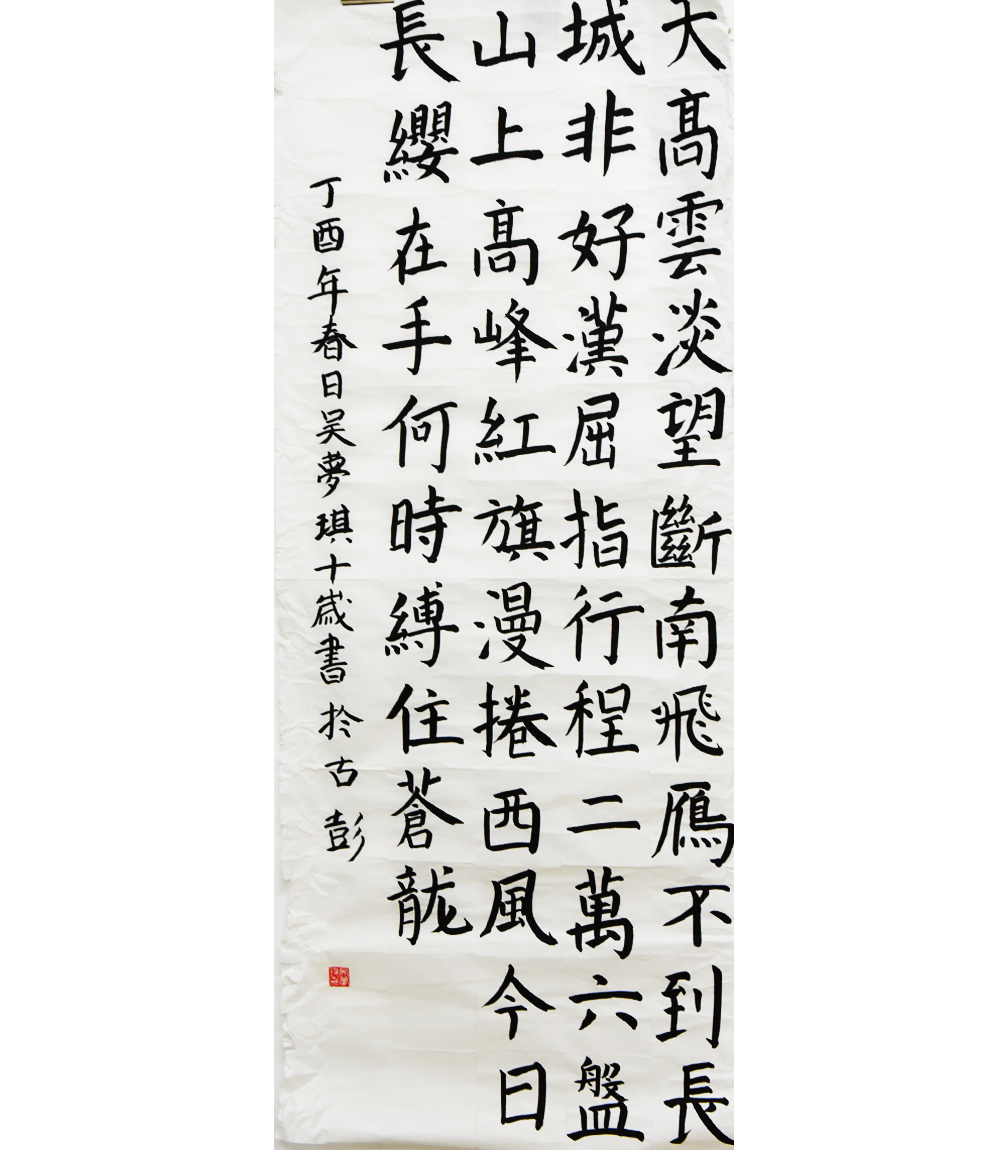 天髙雲淡望斷南飛鴈不到長
城非好漢屈指行程二萬六盤
山上髙峰紅旗漫捲西風今日
長纓在手何時縛住蒼龍
丁酉年春日吴夢琪十歲書於古彭